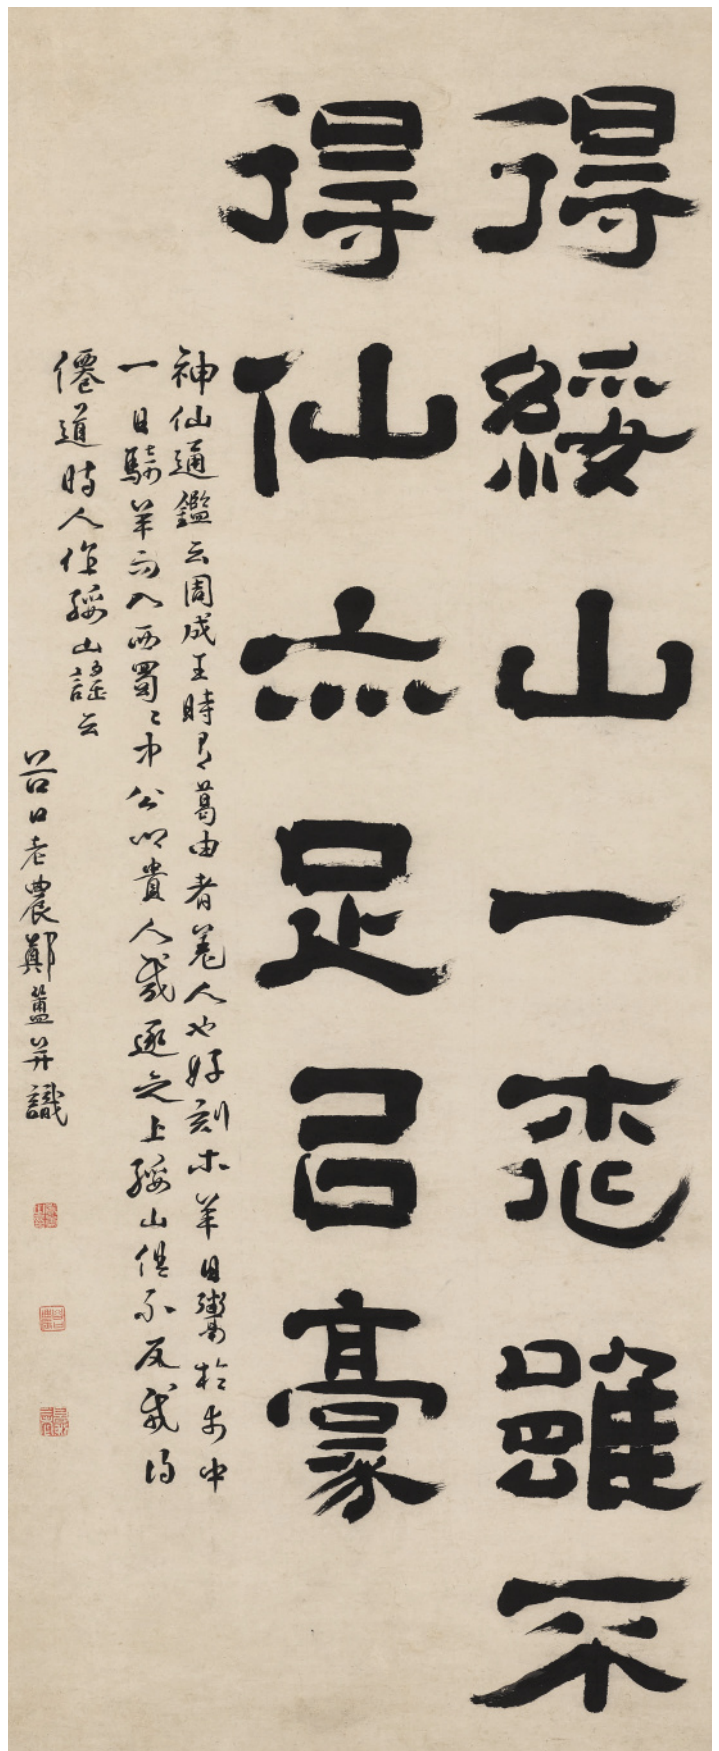 得綏山一桃雖不
得仙亦足㠯豪
神仙通鑑云周成王時有葛由者羌人也好刻木羊自鬻於市中
一日騎羊而入西蜀々中公卿貴人或逐之上綏山俱不反或得
僊道時人作綏山謡云
谷口老農鄭簠并識